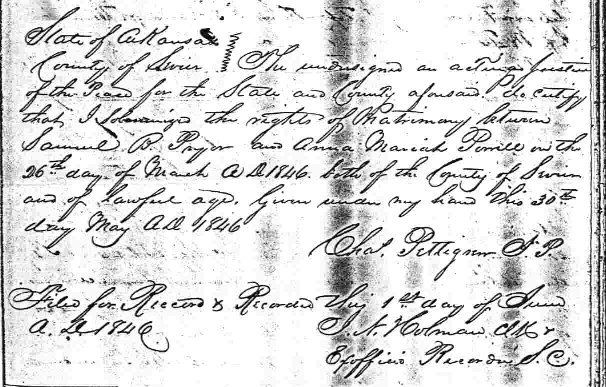 State of Arkansas
County of Sevier } The undersigned an acting Justice
of the Peace for the State and County aforesaid. Do certify
that I solemnized the rights of Matrimony between
Samuel B. Pryor and Anna Mariah Powell on the
26th day of March A D 1846. both of the County of Sevier
and of lawful age. Given under my hand this 30th
day May A D 1846
Chas. Pettigrew J. P.
Filed for Record & Recorded this 1st day of June
A. D. 1846. Holman Clk &
Exofficio Recorder S. C.